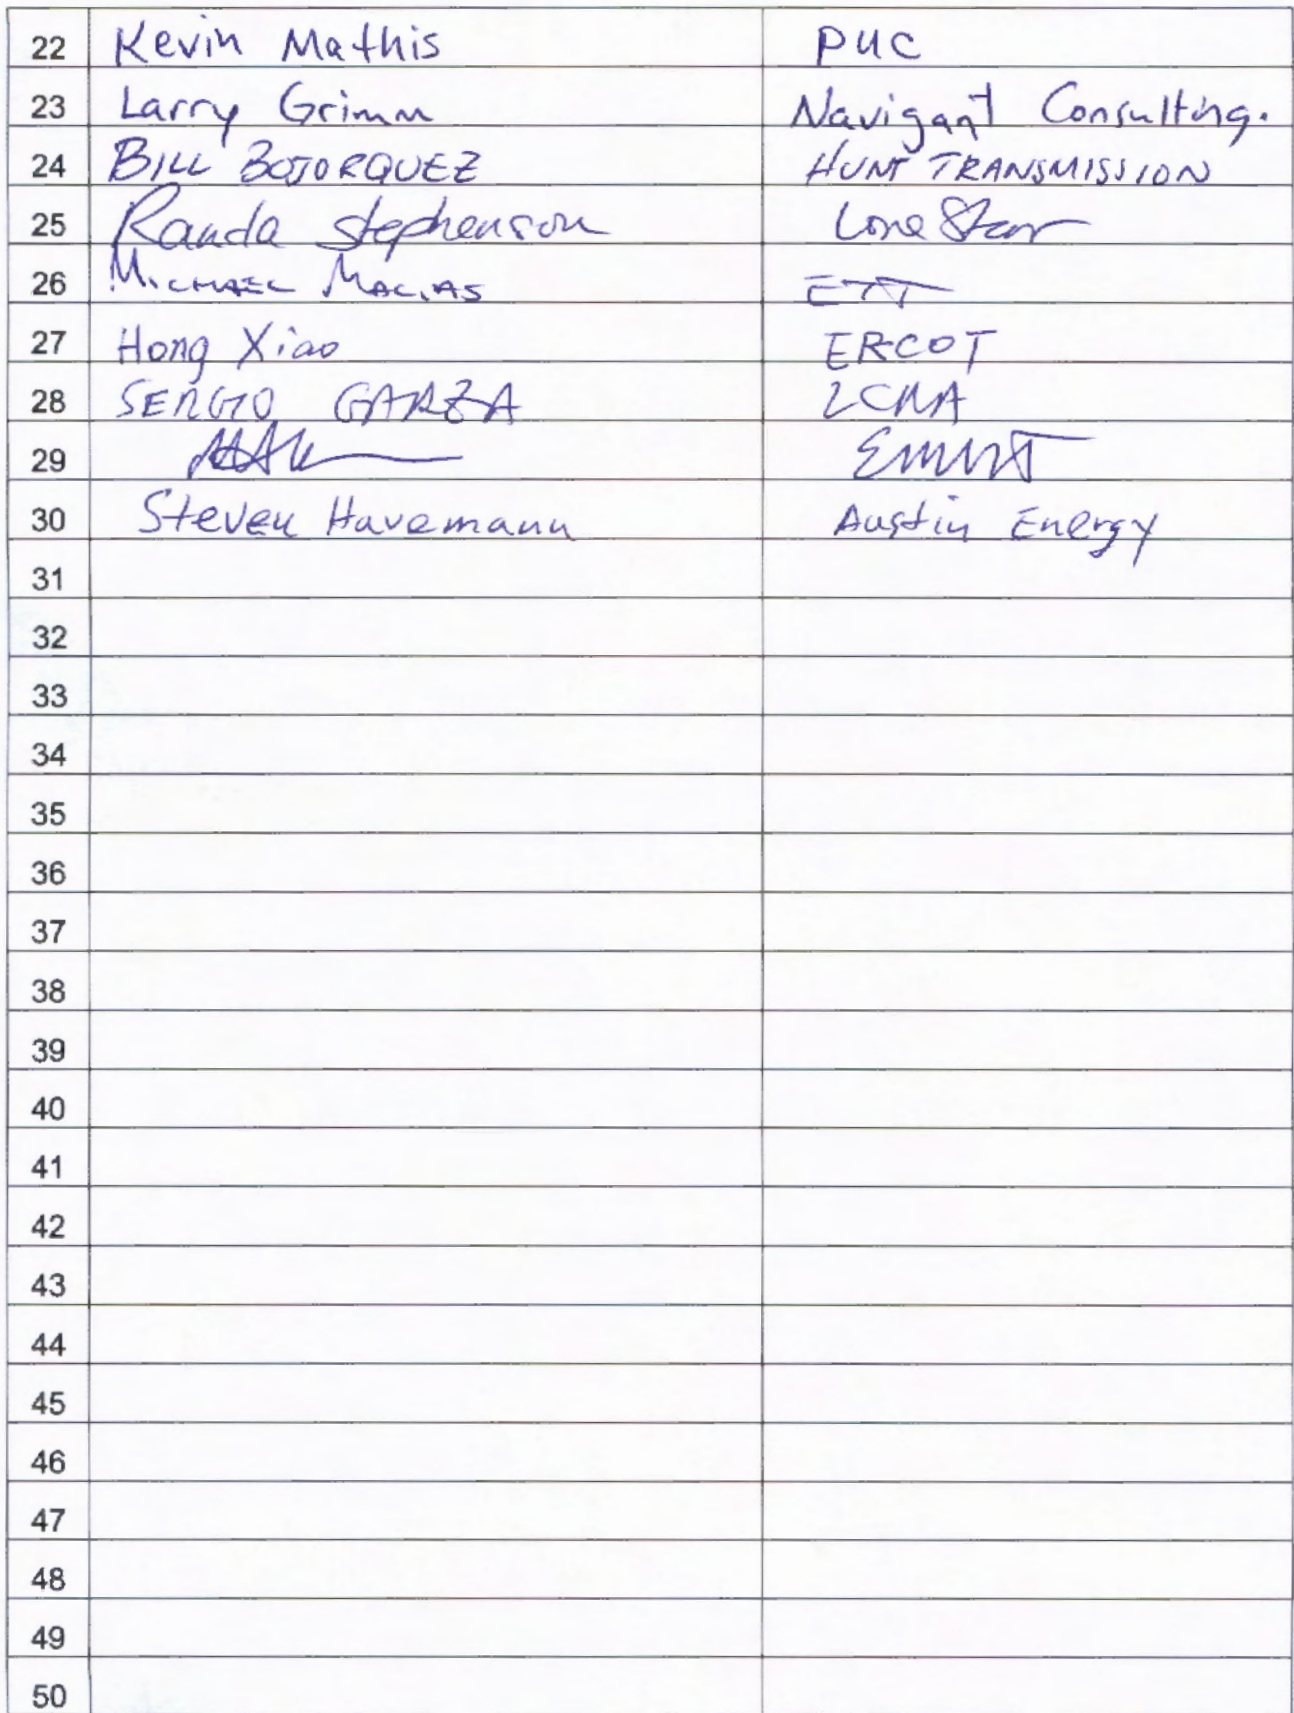 22 Kevin Mathis PUC
23 Larry Grimm Navigant Consulting.
24 BILL BOJORQUEZ HUNT TRANSMISSION
25 Randa Stephenson Lone Star
26 MICHAEL MACIAS ETT
27 Hong Xiao ERCOT
28 SERGIO GARZA LCRA
29
30 Steven Havemann Austin Energy
31
32
33
34
35
36
37
38
39
40
41
42
43
44
45
46
47
48
49
50